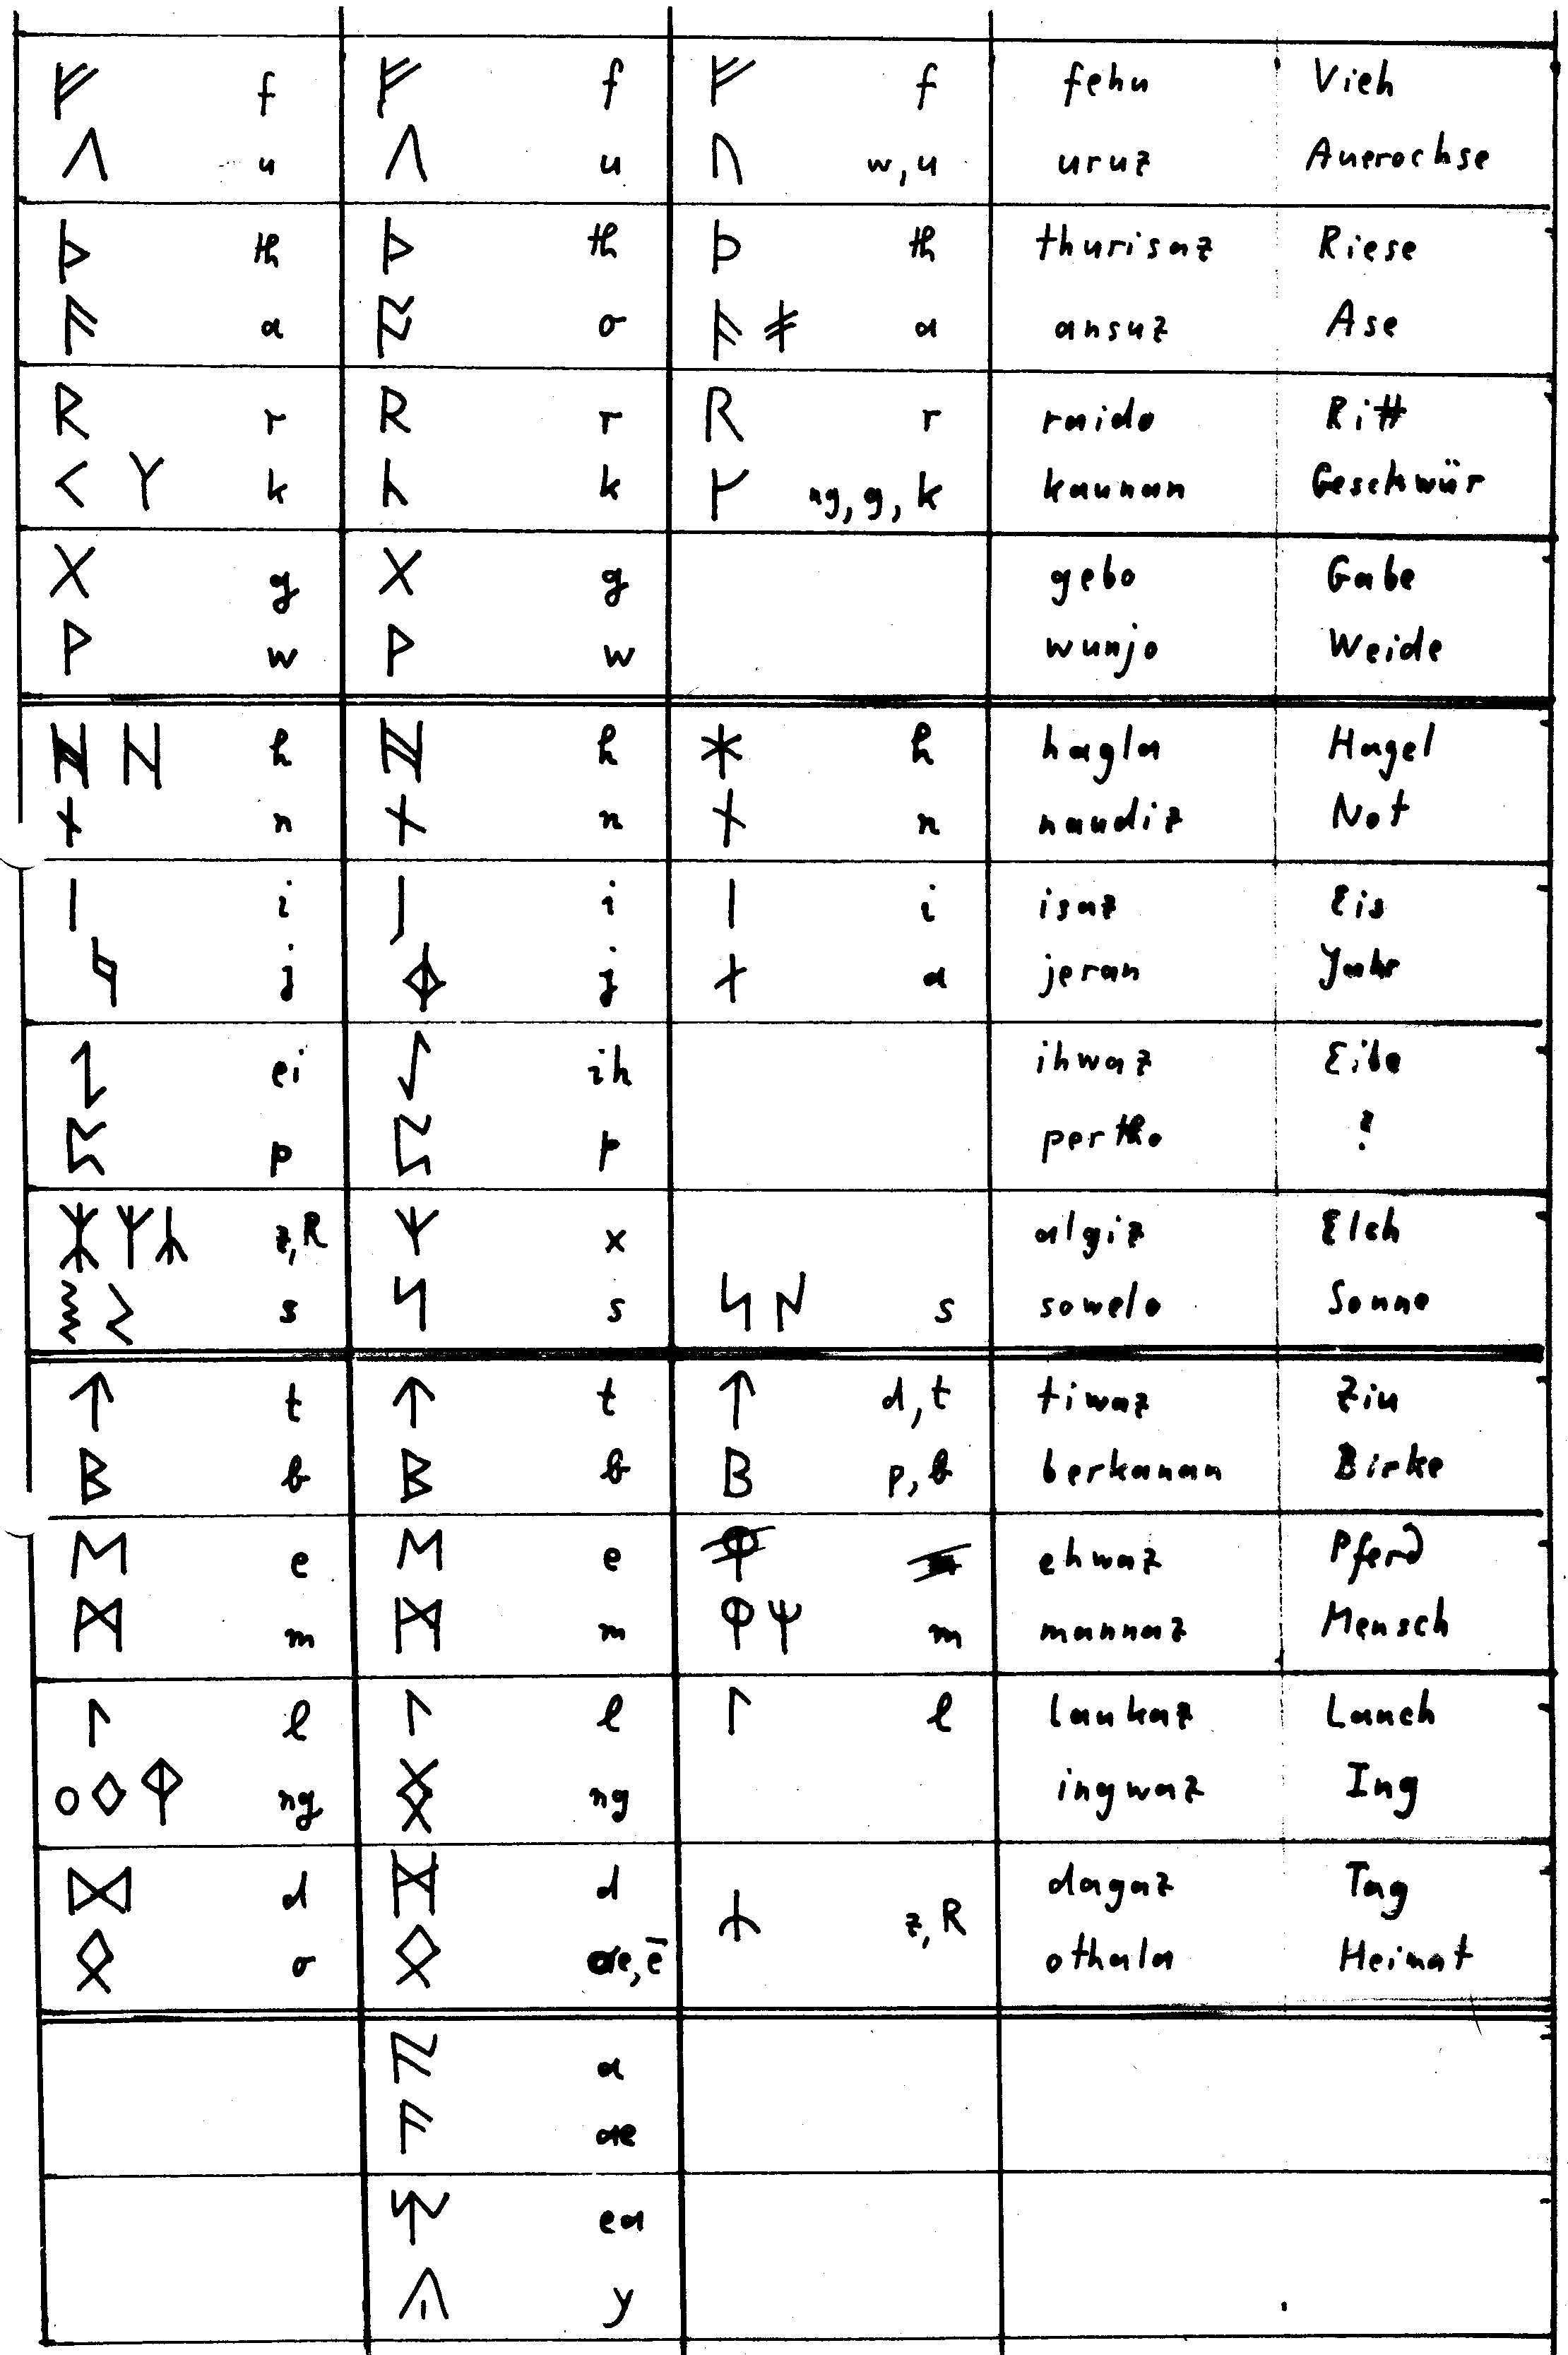 ᚠ f ᚠ f ᚠ f fehu Vieh
ᚢ u ᚢ u ᚢ w, u uruz Auerochse
ᚦ th ᚦ th ᚦ th thurisaz Riese
ᚨ a ᚩ o ᚨ ᚬ a ansuz Ase
ᚱ r ᚱ r ᚱ r raido Ritt
ᚲ ᛉ k ᚳ k ᚴ ng, g, k kaunan Geschwür
ᚷ g ᚷ g gebo Gabe
ᚹ w ᚹ w wunjo Weide
ᚻ ᚺ h ᚻ h ᚼ h hagla Hagel
ᚾ n ᚾ n ᚾ n naudiz Not
ᛁ i ᛁ i ᛁ i isaz Eis
j ᛄ j ᛅ a jeran Jahr
ᛇ ei ᛇ ih ihwaz Eibe
ᛈ p ᛈ p pertho ?
ᛯ ᛉ ᛦ z, R ᛉ x algiz Elch
ᛊ s ᛋ s ᛋ s sowelo Sonne
ᛏ t ᛏ t ᛏ d, t tiwaz Ziu
ᛒ b ᛒ b ᛒ p, b berkanan Birke
ᛖ e ᛖ e ehwaz Pferd
ᛗ m ᛗ m ᛘ m mannaz Mensch
ᛚ l ᛚ l ᛚ l laukaz Lauch
ᛜ ng ᛝ ng ingwaz Ing
ᛞ d ᛞ d dagaz Tag
z, R
ᛟ o ᛟ oe, ē othala Heimat
ᚪ a
ᚫ ae
ᛠ ea
ᚣ y